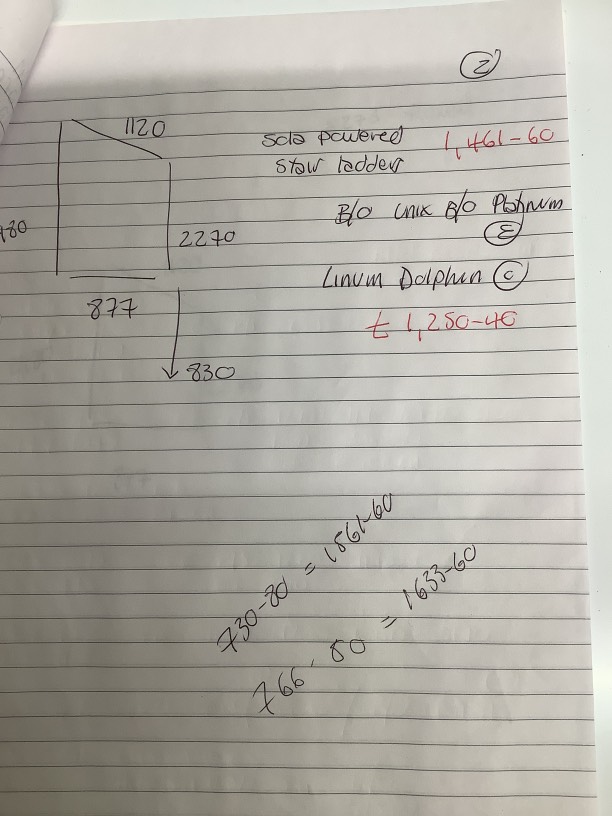 2
1120
Sola powered 1,461-60
Star ladders
B/O Unix B/O Platinum
E
480
2270
Linum Dolphin C
877
£ 1,250-40
830
730-80 = 1861-60
766.80 = 1633-60